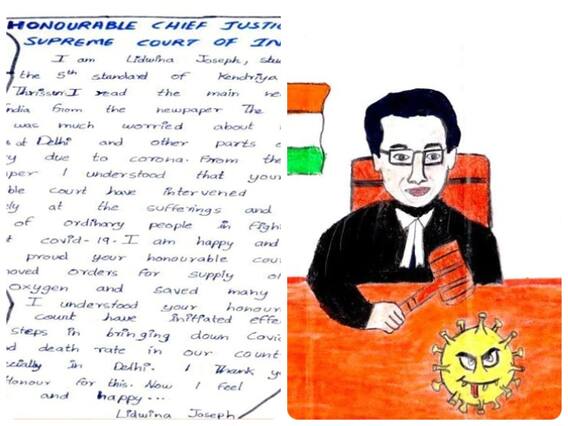 HONOURABLE CHIEF JUSTIC
SUPREME COURT OF IN
I am Lidwina Joseph, stu
the 5th standard of Kendriya
Thrissur. I read the main ne
ndia from the newspaper The
was much worried about
s at Delhi and other parts o
y due to corona. From the
per I understood that your
ble court have intervened
ly at the sufferings and
of ordinary people in figh
t covid-19. I am happy and
proud your honourable cou
oved orders for supply o
oxygen and saved many
I understood your honour
court have initiated effe
steps in bringing down Covid
d death rate in our count
ecially in Delhi. I Thank y
Honour for this. Now I feel
and happy...
Lidwina Joseph